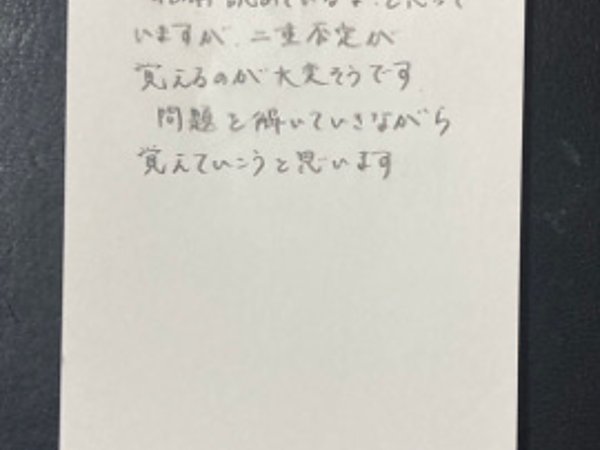 読めているな、と思って
いますが、二重否定が
覚えるのが大変そうです
問題を解いていきながら
覚えていこうと思います